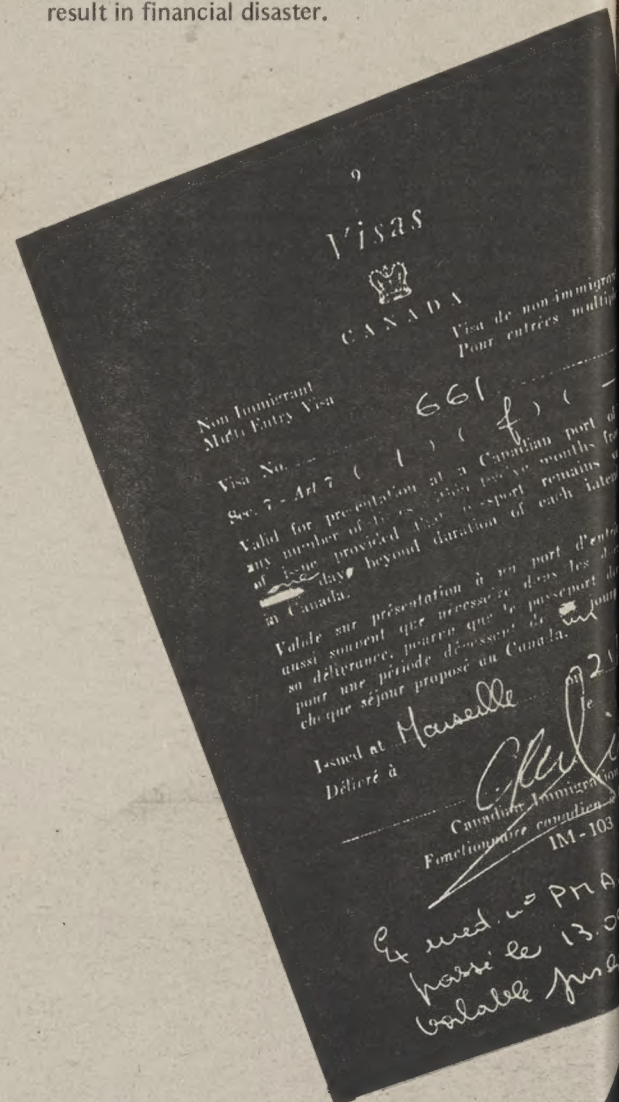 result in financial disaster.
9
Visas
CANADA
Non Immigrant
Multi Entry Visa
Visa de non-immigran
Pour entrées multip
Visa No. 661
Sec. 7 - Art 7 ( 1 ) ( f ) ( -
Valid for presentation at a Canadian port of
any number of months
of issue provided that passport remains
one day beyond duration of each
in Canada.
Valide sur présentation à un port d'entré
aussi souvent que nécessaire dans les
sa délivrance, pourvu que le passeport
pour une période dépassant de un jour
chaque séjour proposé au Canada.
Issued at Marseille on 21
Délivré à le
Canadian Immigration
Fonctionnaire canadien
IM-103
Ex med. nº PMA
passé le 13.0
valable